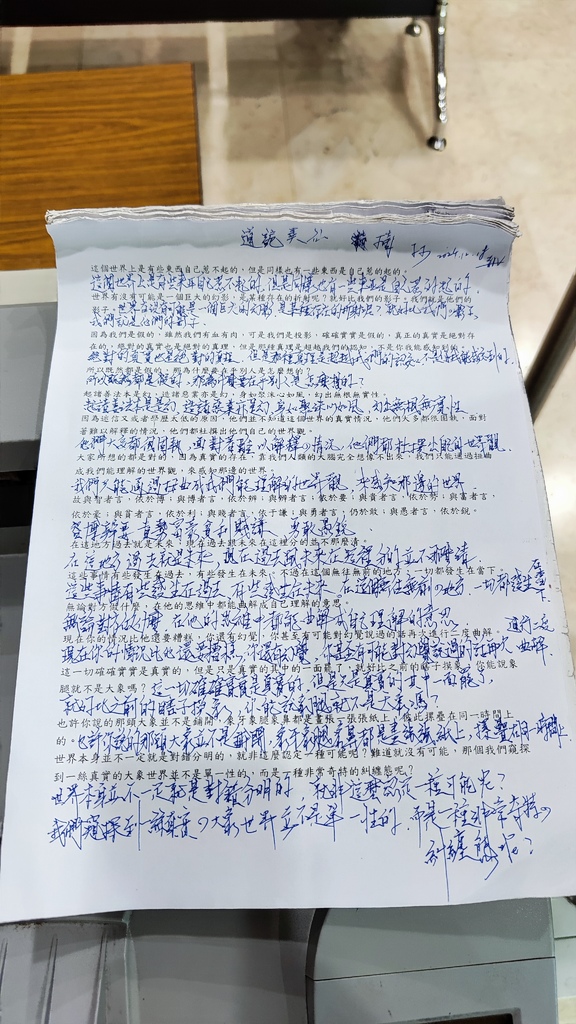 道詭異仙
2024.10.18
這個世界上是有些東西自己惹不起的，但是同樣也有一些東西是自己惹的起的。
這個世界上是有些東西自己惹不起的，但是同樣也有一些東西是自己惹的起的。
世界有沒有可能是一個巨大的幻影，是某種存在的折射呢？就好比我們的影子？我們就是他們的
影子？世界有沒有可能是一個巨大的幻影，是某種存在的折射呢？就好比我們的影子
我們就是他們的影子
因為我們是假的，雖然我們有血有肉，可是我們是投影，確確實實是假的，真正的真實是絕對存
在的，絕對的真實也是絕對的真理，但是那種真理是超越我們的認知，不是你我能感知到的，
絕對的真實也是絕對的真理，但是那種真理是超越我們的認知，不是你我能感知到的，
所以既然都是假的，那為什麼要在乎別人是怎麼想的？
所以既然都是假的，那為什麼要在乎別人是怎麼想的？
起諸善法本是幻，造諸惡業亦是幻，身如聚沫心如風，幻出無根無實性
起諸善法本是幻，造諸惡業亦是幻，身如聚沫心如風，幻出無根無實性
因為迷信又或者歷歷太低的原因，他們並不知道這個世界的真實情況，他們大多都很困執，面對
著難以解釋的情況，他們都杜撰出他們自己的世界觀，
他們大多都很困執，面對著難以解釋的情況，他們都杜撰出他們自己的世界觀
大家所想的都是對的，因為真實的存在，靠我們人類的大腦完全想像不出來，我們只能通過扭曲
成我們能理解的世界觀，來感知那邊的世界
我們只能通過扭曲成我們能理解的世界觀，來感知那邊的世界
故與智者言，依於博；與博者言，依於辨；與辨者言，依於要；與貴者言，依於勢；與富者言，
依於豪；與貧者言，依於利；與賤者言，依于謙；與勇者言，依於敢；與愚者言，依於銳。
在這地方過去就是未來，現在過去跟未來在這裡分的並不那麼清
在這地方過去就是未來，現在過去跟未來在這裡分的並不那麼清
這些事情有些發生在過去，有些發生在未來，不過在這個無往無前的地方，一切都發生在當下。
這些事情有些發生在過去，有些發生在未來，不過在這個無往無前的地方，一切都發生在當下
無論對方說什麼，在他的思維中都能曲解成自己理解的意思。
無論對方說什麼，在他的思維中都能曲解成自己理解的意思
現在你的情況比他還要糟糕，你還有幻覺，你甚至有可能對幻覺說過的話再次進行二度曲解。
現在你的情況比他還要糟糕，你還有幻覺，你甚至有可能對幻覺說過的話再次進行二度曲解
這一切確確實實是真實的，但是只是真實的其中一面罷了，就好比之前的瞎子摸象，你能說象
腿就不是大象嗎？這一切確確實實是真實的，但是只是真實的其中一面罷了，
就好比之前的瞎子摸象，你能說象腿就不是大象嗎？
也許你說的那頭大象並不是鋪開，象牙象腿象鼻都是畫張一張張紙上，彼此摞疊在同一時間上
的。也許你說的那頭大象並不是鋪開，象牙象腿象鼻都是畫張一張張紙上，摞疊在同一時間上
世界本身並不一定就是對錯分明的，就非這麼認定一種可能呢？難道就沒有可能，那個我們窺探
到一絲真實的大象世界並不是單一性的，而是一種非常奇特的糾纏態呢？
世界本身並不一定就是對錯分明的 就非這麼認定一種可能呢？
我們窺探到一絲真實的大象世界並不是單一性的，而是一種非常奇特的
糾纏態呢？